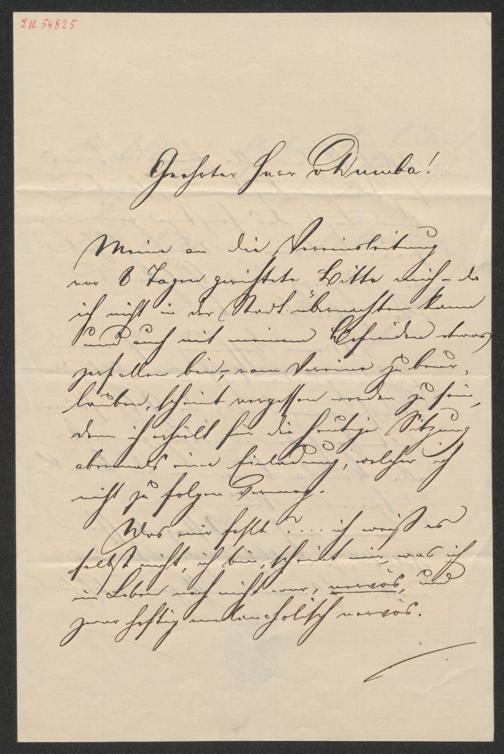 J.N. 54825
Geehrter Herr v Dumba!
Meine an die Vereinsleitung
vor 8 Tagen gerichtete Bitte mich – da
ich nicht in der Stadt übernachten kann
und auch mit meinem Befinden etwas
zerfallen bin, – vom Vereine zu beur-
lauben, scheint vergessen worden zu sein,
denn ich erhielt für die heutige Sitzung
abermals eine Einladung, welcher ich
nicht zu folgen vermag.
Was mir fehlt? .... ich weiß es
selbst nicht, ich bin, scheint mir, was ich
im Leben noch nicht war, nervös, und
zwar heftig melancholisch nervös.